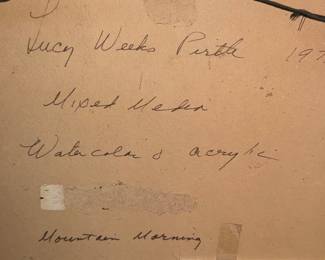 D
Lucy Weeks Pirtle 197
Mixed Media
Watercolor & acrylic
Mountain Morning